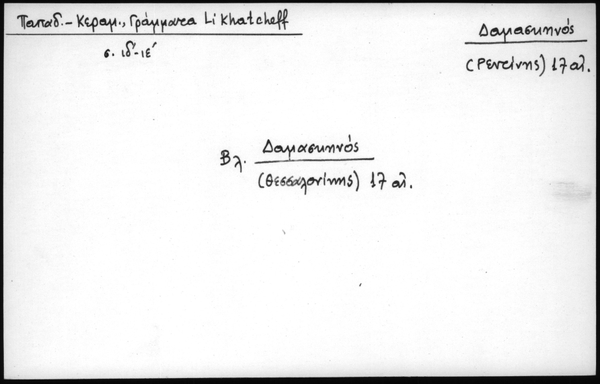 Παπαδ.-Κεραμ., Γράμματα Li Khatcheff
σ. ιδ'-ιε'
Δαμασκηνός
(Ρεντίνης) 17 αι.
Βλ. Δαμασκηνός
(Θεσσαλονίκης) 17 αι.